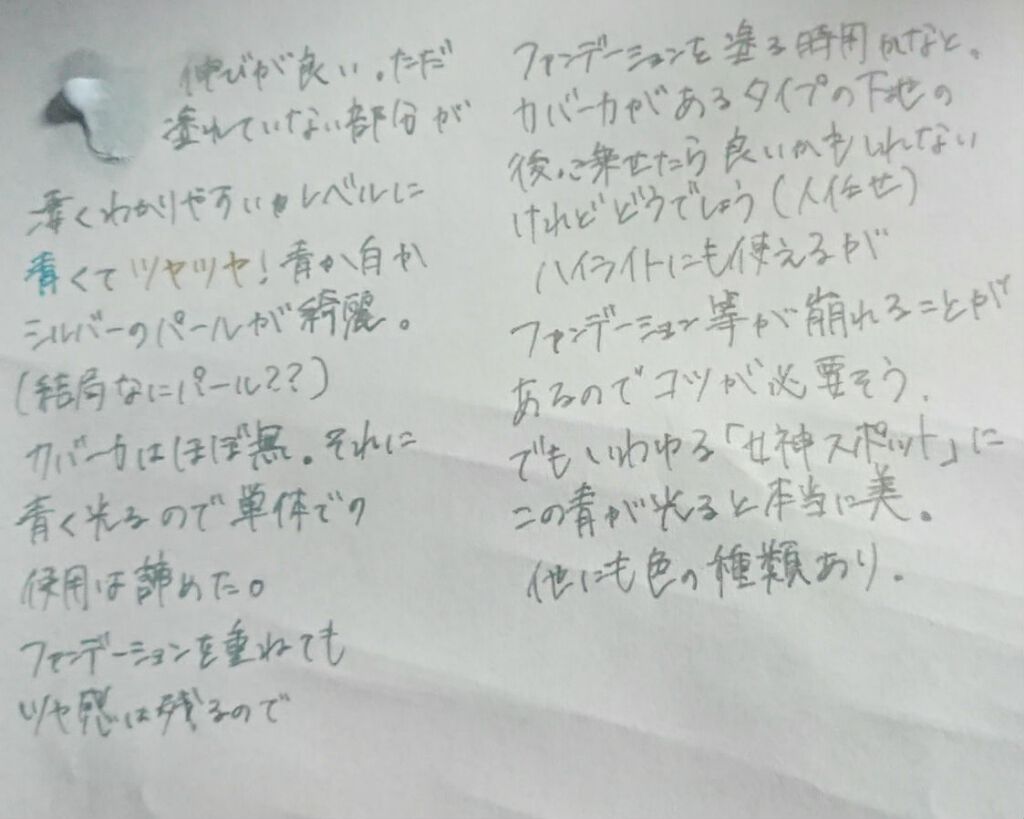 伸びが良い。ただ
塗れていない部分が
凄くわかりやすいレベルに
青くてツヤツヤ!青か白か
シルバーのパールが綺麗。
(結局なにパール??)
カバー力はほぼ無。それに
青く光るので単体での
使用は諦めた。
ファンデーションを重ねても
ツヤ感は残るので
ファンデーションを塗る時用かなと。
カバー力があるタイプの下地の
後に乗せたら良いかもしれない
けれどどうでしょう(人任せ)
ハイライトにも使えるが
ファンデーション等が崩れることが
あるのでコツが必要そう.
でもいわゆる「女神スポット」に
この青が光ると本当に美。
他にも色の種類あり.